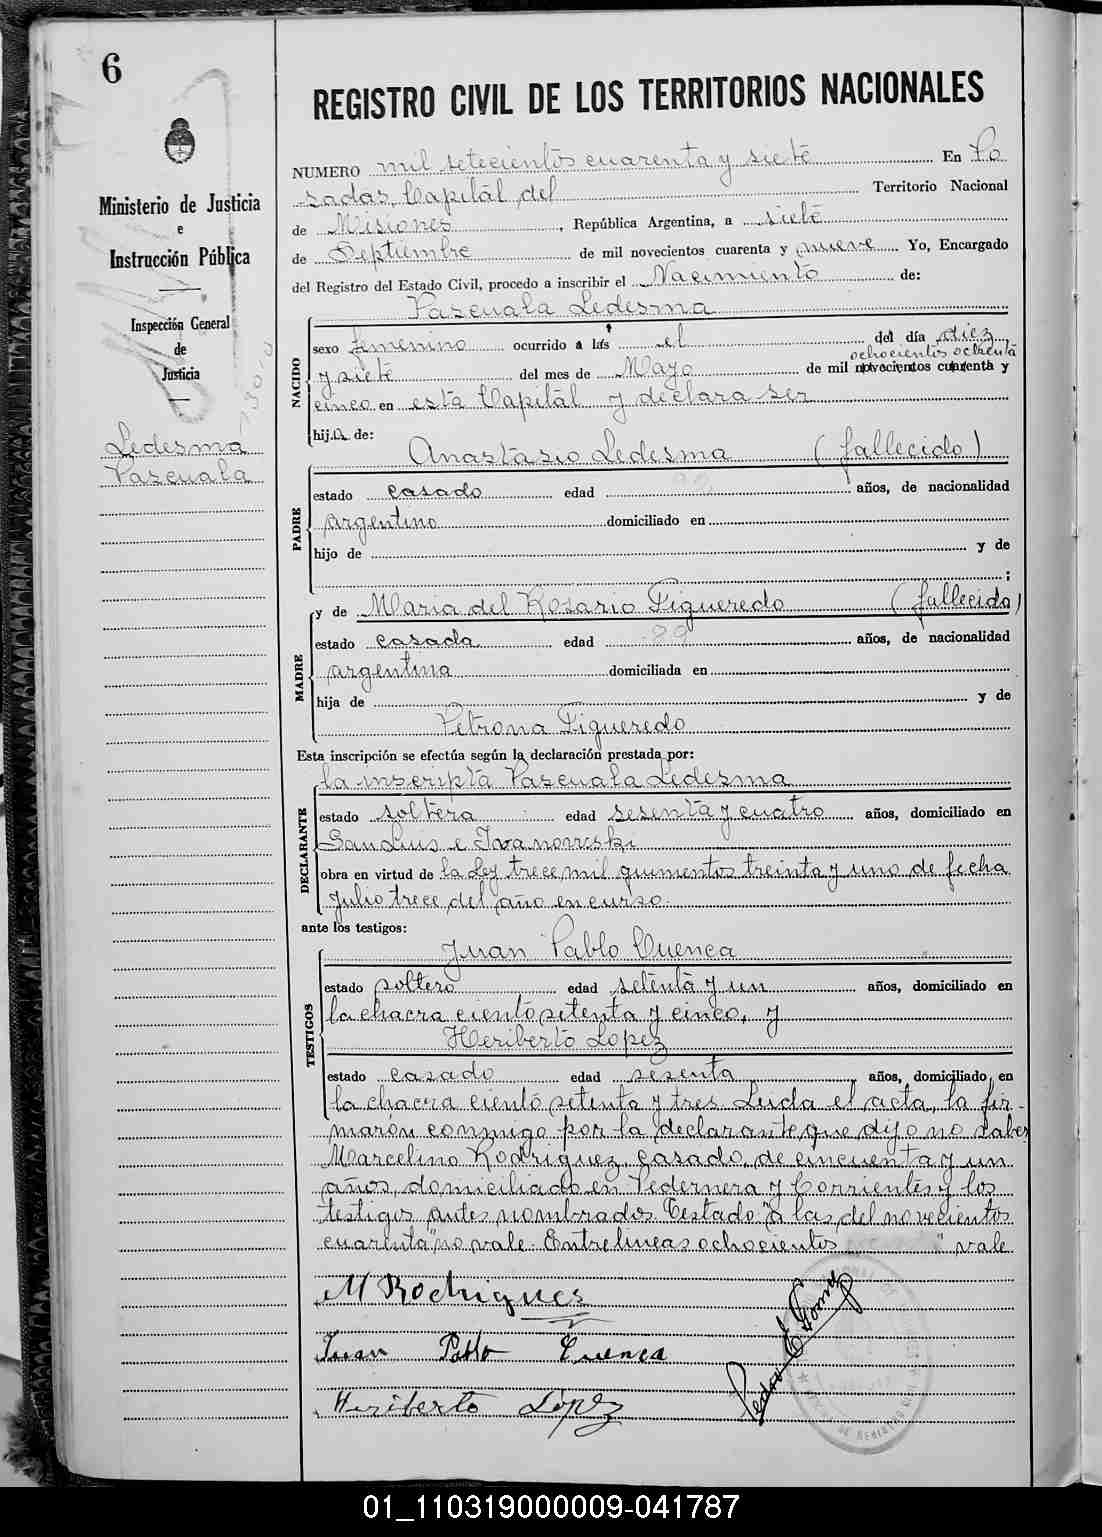 6
REGISTRO CIVIL DE LOS TERRITORIOS NACIONALES
Ministerio de Justicia
e
Instrucción Pública
Inspección General
de
Justicia
Ledesma
Pascuala
NUMERO mil setecientos cuarenta y siete En Po
sadas, Capital del Territorio Nacional
de Misiones, República Argentina, a siete
de Septiembre de mil novecientos cuarenta y nueve Yo, Encargado
del Registro del Estado Civil, procedo a inscribir el Nacimiento de:
Pascuala Ledesma
NACIDO
sexo femenino ocurrido a las el del día diez
ochocientos ochenta
y siete del mes de Mayo de mil novecientos cuarenta y
cinco en esta Capital y declara ser
hija de:
PADRE
Anastasio Ledesma (fallecido)
estado casado edad años, de nacionalidad
argentino domiciliado en
hijo de y de
;
MADRE
y de Maria del Rosario Figueredo (fallecida)
estado casada edad años, de nacionalidad
argentina domiciliada en
hija de y de
Petrona Figueredo
Esta inscripción se efectúa según la declaración prestada por:
DECLARANTE
la inscripta Pascuala Ledesma
estado soltera edad sesenta y cuatro años, domiciliado en
San Luis e Ivanowski
obra en virtud de la Ley trece mil quinientos treinta y uno de fecha
Julio trece del año en curso.
ante los testigos:
TESTIGOS
Juan Pablo Cuenca
estado soltero edad setenta y un años, domiciliado en
la chacra ciento setenta y cinco, y
Heriberto Lopez
estado casado edad sesenta años, domiciliado en
la chacra ciento setenta y tres. Leida el acta, la fir-
maron conmigo por la declarante que dijo no saber
Marcelino Rodriguez, casado, de cincuenta y un
años, domiciliado en Pedernera y Corrientes y los
testigos antes nombrados. Testado "a las, del novecientos
cuarenta" no vale. Entrelineas ochocientos " vale
M Rodrigues
Juan Pablo Cuenca
Heriberto López
Pedro E. Gomez
01_110319000009-041787